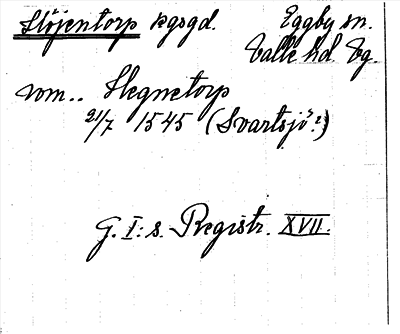 Slöjentorp kgsgd. Eggby sn.
Valle hd. Vg.
nom.. Slegnetorp
21/7 1545 (Svartsjö?)
G. I:s. Registr. XVII.